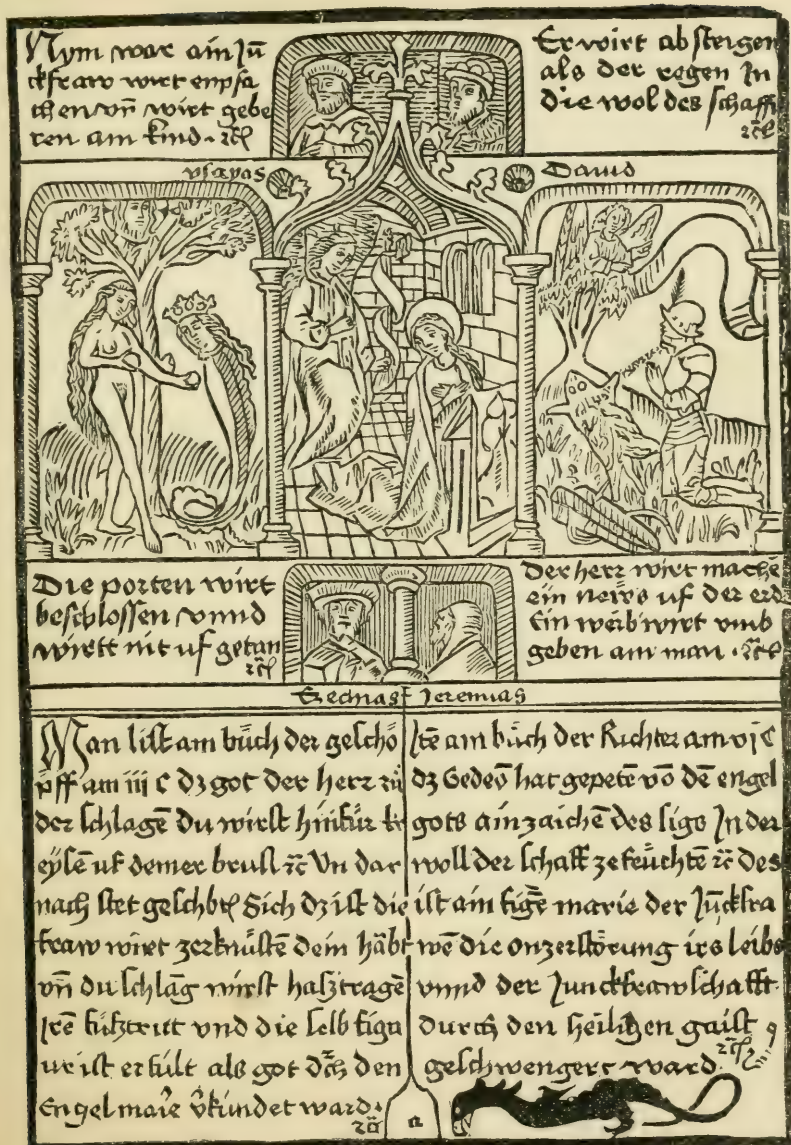 Nym war ain Jū
ckfraw wirt enpfa
chen vn̄ wirt gebe
ren ain kind · ꝛc̄
Er wirt absteigen
als der regen In
die wol des schaffs
ꝛc̄
ysayas
Dauid
Die porten wirt
beschlossen vnnd
wirtt nit uf getan
ꝛc̄
Der herr wirt machē
ein news uf der erd
Ein weib wirt vmb
geben ain man · ꝛc̄
Jeremias
Man list am bůch der geschö
pff am iii c dz got der herr zů
der schlagē du wirst hinfür kr
eysē uf deiner brust ꝛc̄ Vn dar
nach stet geschbē Sich dz ist die
fraw wirt zerknüstē dein häbt
vn̄ du schlāg wirst hasztragē
Irē fůsztritt vnd die selb figu
ur ist erfült als got dch den
Engel marie v̄kündet ward ·
ꝛc̄
Itē am bůch der Richter am vi c
dz Gedeō hat gepetē vō dē engel
gots ain zaichē des sigs In der
woll der schaff ze feüchtē ꝛc̄ des
ist ain figē marie der Jūckfra
wē die onzerstörung irs leibs
vnnd der Junckfrawschafft
durch den heiligen gaist
geschwengert ward ꝛc̄
a